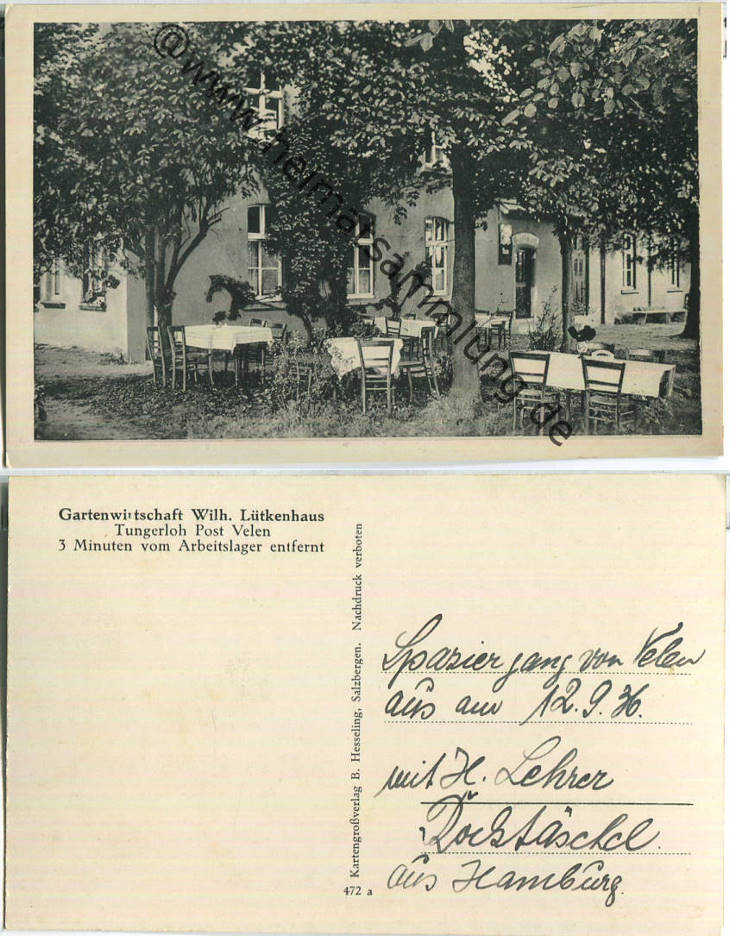 @www.heimatsammlung.de
Gartenwirtschaft Wilh. Lütkenhaus
Tungerloh Post Velen
3 Minuten vom Arbeitslager entfernt
Kartengroßverlag B. Hesseling, Salzbergen. Nachdruck verboten
472 a
Spaziergang von Velen
aus am 12.9.36.
mit H. Lehrer
aus Hamburg.